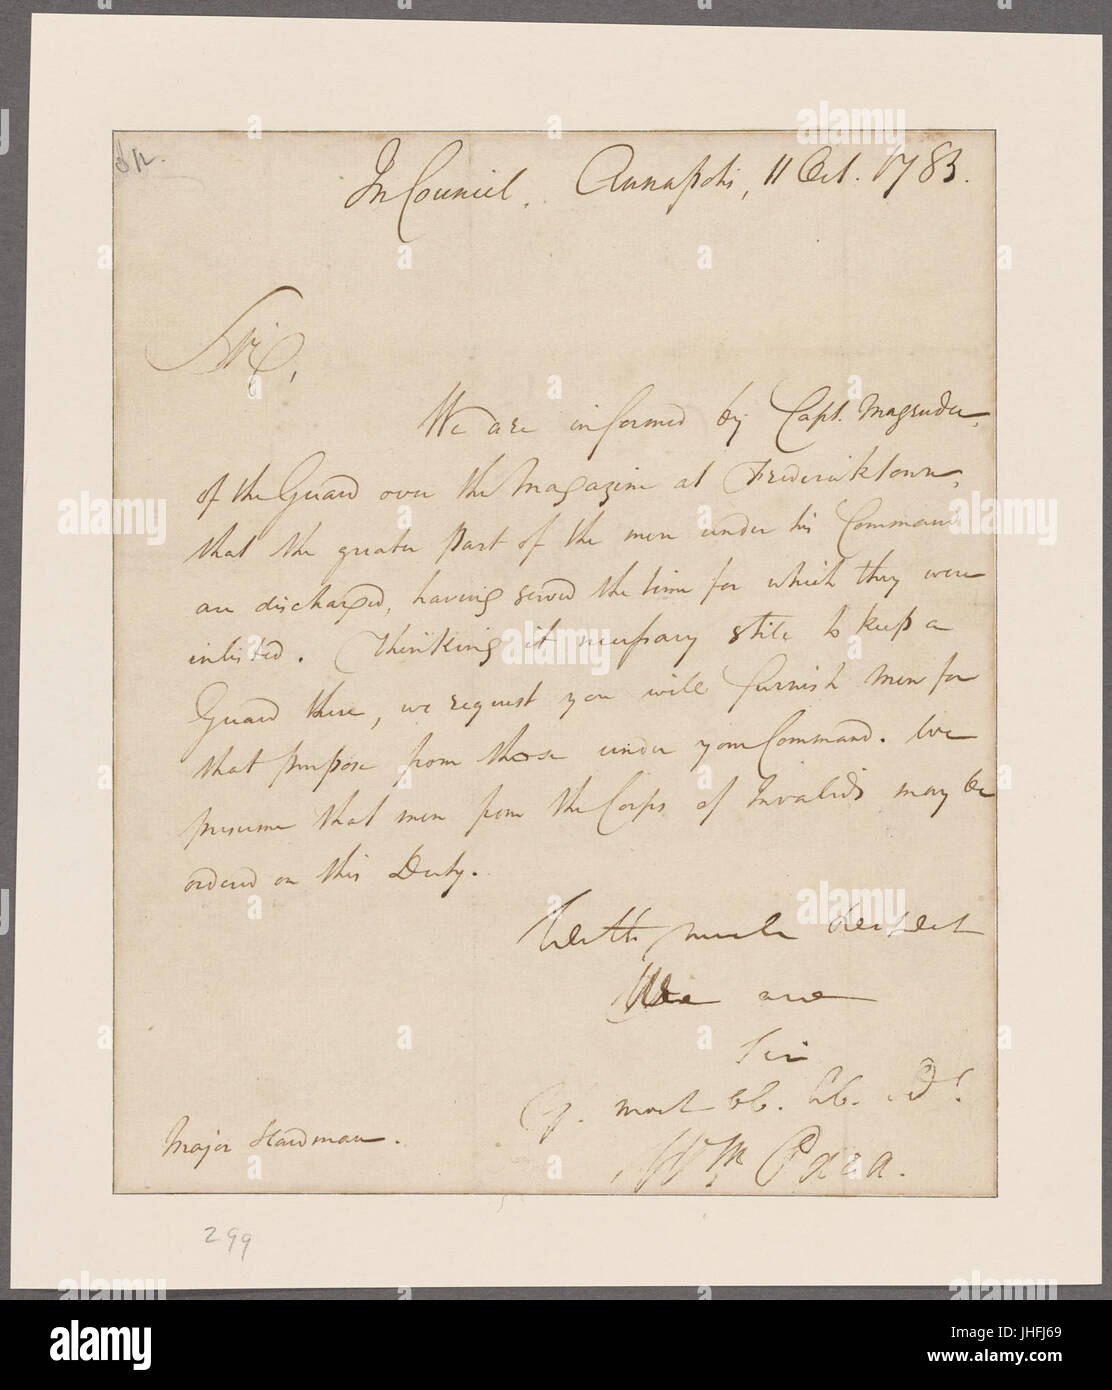 In Council. Annapolis, 11 Oct. 1783.
Sir,
We are informed by Capt. Magruder,
of the Guard over the Magazine at Fredericktown,
that the greater part of the men under his Command
are discharged, having served the time for which they were
inlisted. Thinking it necessary still to keep a
Guard there, we request you will furnish Men for
that purpose from those under your Command. We
presume that men from the Corps of Invalids may be
ordered on this Duty.
With much Respect
We are
Sir
Yr. most ob. hb. Sd.
Major Hardman.
Wm. Paca.
299
alamy
Image ID: JHFJ69
www.alamy.com